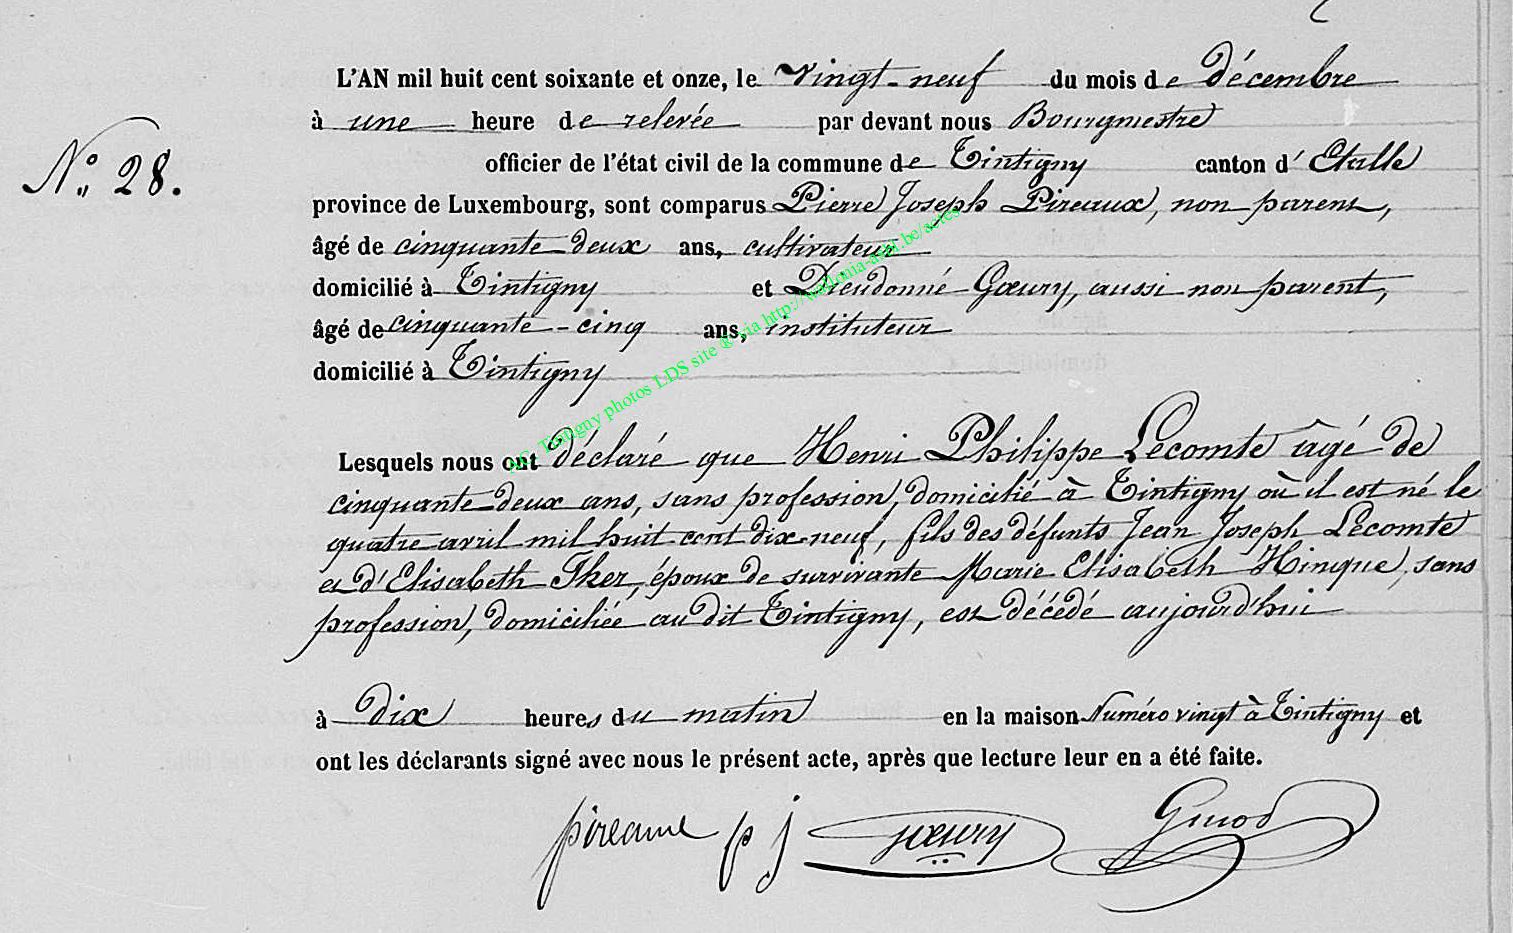 L'AN mil huit cent soixante et onze, le vingt-neuf du mois de décembre
à une heure de relevée par devant nous Bourgmestre
officier de l'état civil de la commune de Tintigny canton d' Etalle
N° 28.
province de Luxembourg, sont comparus Pierre Joseph Pireaux, non parent,
âgé de cinquante deux ans, cultivateur
domicilié à Tintigny et Dieudonné Gœury, aussi non parent,
âgé de cinquante-cinq ans, instituteur
domicilié à Tintigny
AC Tintigny photos LDS site @ via http://wallonia-asbl.be/actes
Lesquels nous ont déclaré que Henri Philippe Lecomte âgé de
cinquante deux ans, sans profession, domicilié à Tintigny où il est né le
quatre avril mil huit cent dix-neuf, fils des défunts Jean Joseph Lecomte
et d'Elisabeth Iker, époux de survivante Marie Elisabeth Hinque, sans
profession, domiciliée au dit Tintigny, est décédé aujourd'hui
à dix heures du matin en la maison Numéro vingt à Tintigny et
ont les déclarants signé avec nous le présent acte, après que lecture leur en a été faite.
pireaux p j Gœury